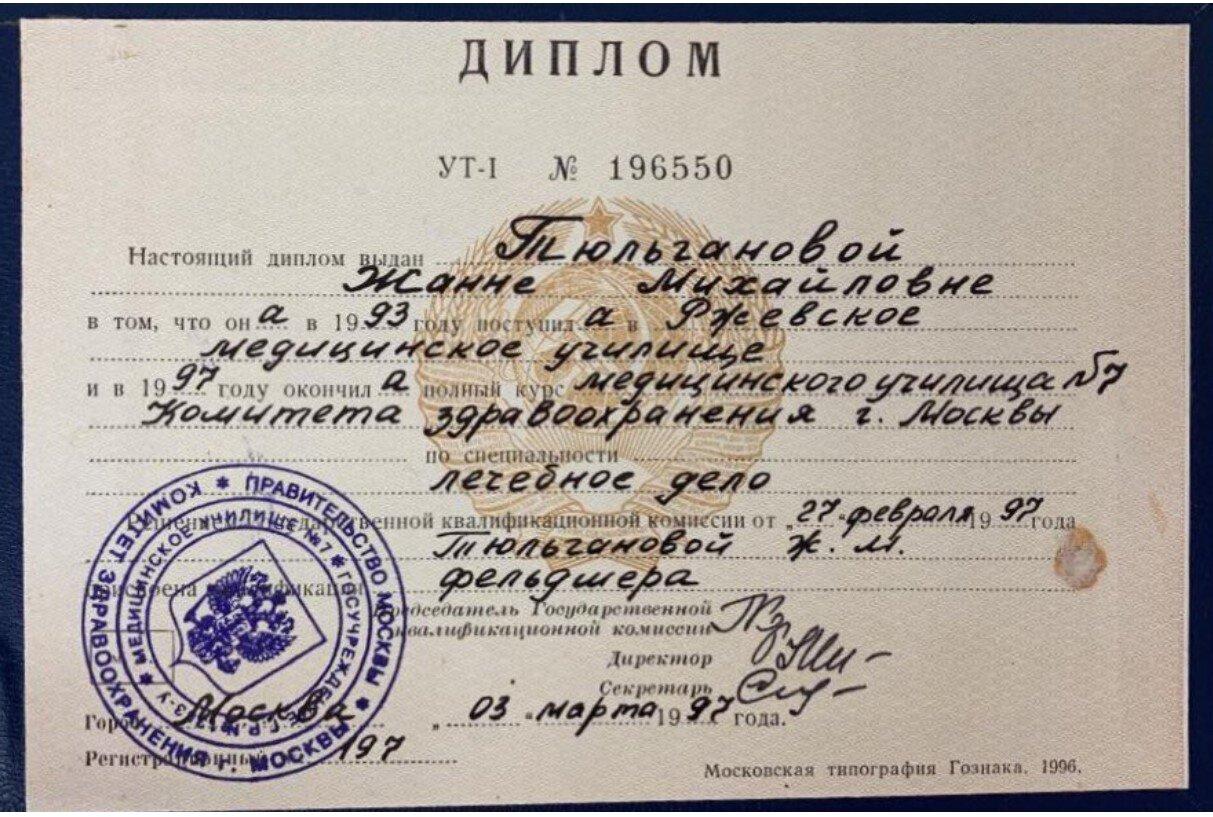 ДИПЛОМ
УТ-I № 196550
Настоящий диплом выдан Тюльгановой
Жанне Михайловне
в том, что он а в 1993 году поступил а в Ржевское
медицинское училище
и в 1997 году окончил а полный курс медицинского училища №7
Комитета здравоохранения г. Москвы
по специальности
лечебное дело
Решением Государственной квалификационной комиссии от „27“ февраля 1997 года
Тюльгановой Ж. М.
присвоена квалификация
фельдшера
Председатель Государственной
квалификационной комиссии
Директор
Секретарь
Город Москва „03“ марта 1997 года.
Регистрационный № 197
Московская типография Гознака. 1996.
ПРАВИТЕЛЬСТВО МОСКВЫ * КОМИТЕТ ЗДРАВООХРАНЕНИЯ г. МОСКВЫ *
МЕДИЦИНСКОЕ УЧИЛИЩЕ №7 * ГОСУЧРЕЖДЕНИЕ